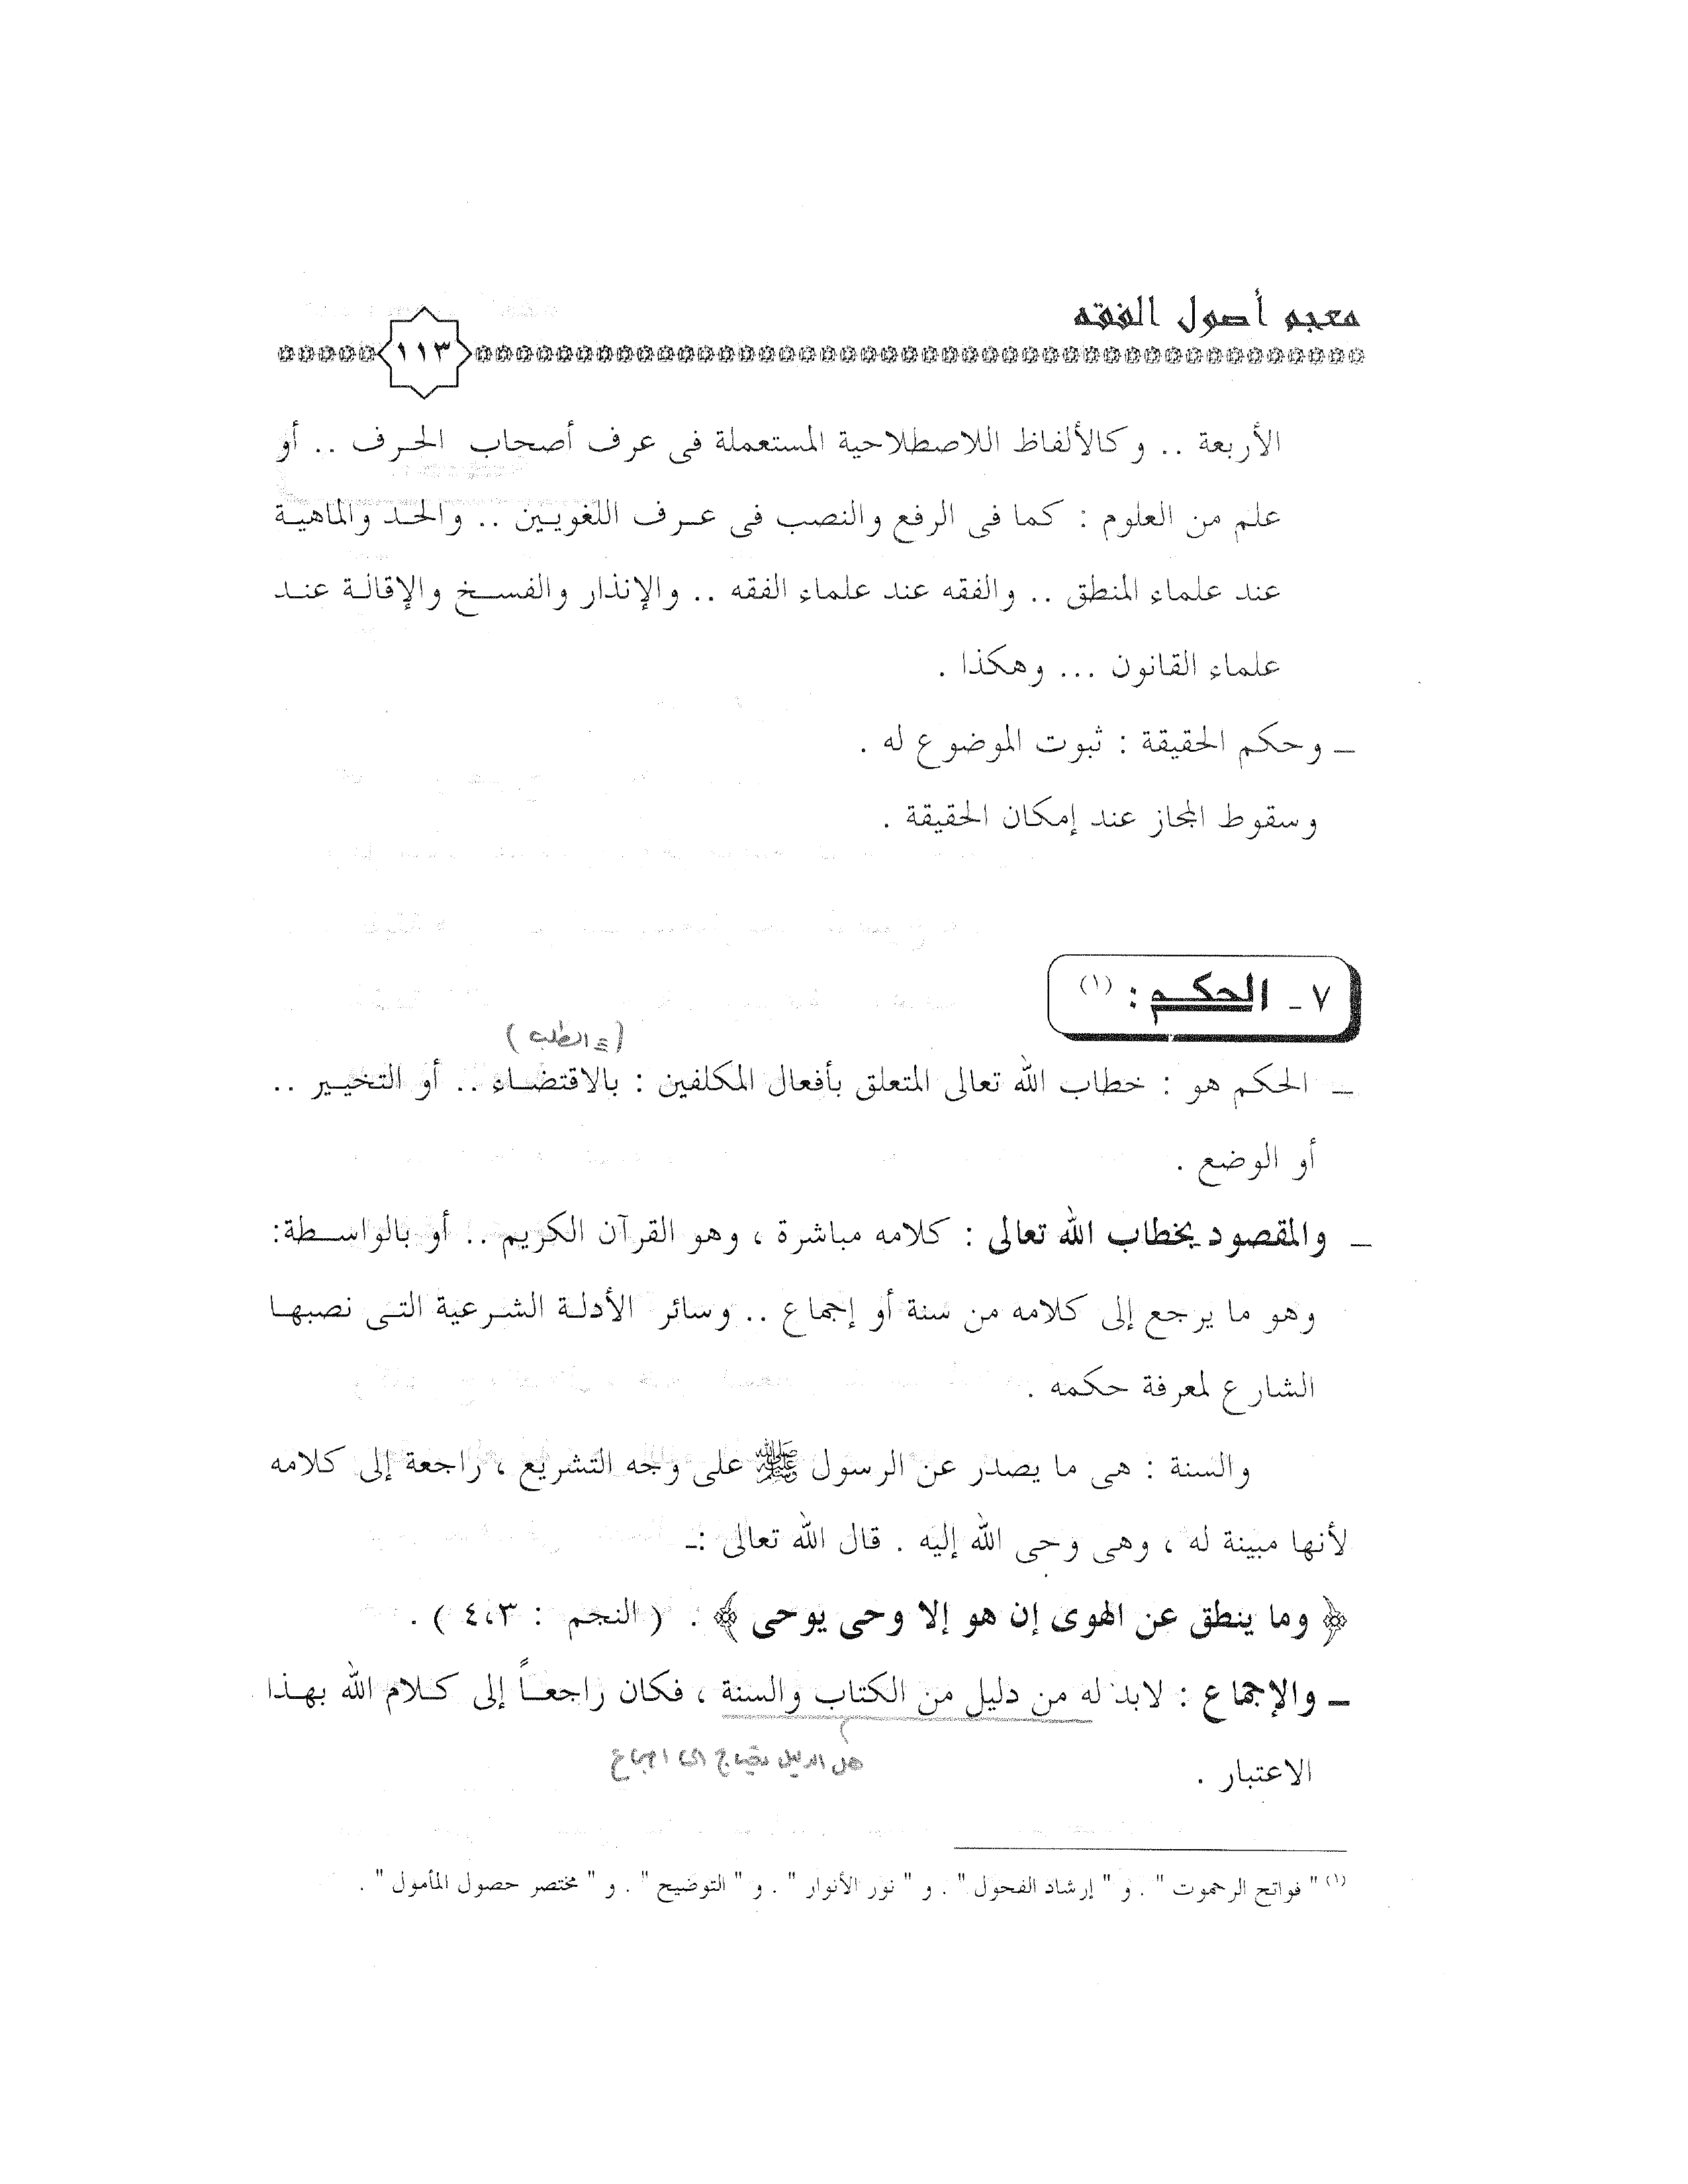 معجم أصول الفقه
١١٣
الأربعة .. وكالألفاظ اللاصطلاحية المستعملة فى عرف أصحاب الحرف .. أو
علم من العلوم : كما فى الرفع والنصب فى عرف اللغويين .. والحد والماهية
عند علماء المنطق .. والفقه عند علماء الفقه .. والإنذار والفسخ والإقالة عند
علماء القانون ... وهكذا .
ـ وحكم الحقيقة : ثبوت الموضوع له .
وسقوط المجاز عند إمكان الحقيقة .
٧ ـ الحكم : (١)
( = الطلب )
ـ الحكم هو : خطاب الله تعالى المتعلق بأفعال المكلفين : بالاقتضاء .. أو التخيير ..
أو الوضع .
ـ والمقصود بخطاب الله تعالى : كلامه مباشرة ، وهو القرآن الكريم .. أو بالواسطة:
وهو ما يرجع إلى كلامه من سنة أو إجماع .. وسائر الأدلة الشرعية التى نصبها
الشارع لمعرفة حكمه .
والسنة : هى ما يصدر عن الرسول ﷺ على وجه التشريع ، راجعة إلى كلامه
لأنها مبينة له ، وهى وحى الله إليه . قال الله تعالى :ـ
﴿ وما ينطق عن الهوى إن هو إلا وحى يوحى ﴾ . ( النجم : ٤،٣ ) .
ـ والإجماع : لابد له من دليل من الكتاب والسنة ، فكان راجعاً إلى كلام الله بهذا
هل الدليل يحتاج الى اجماع
الاعتبار .
(١) " فواتح الرحموت " . و " إرشاد الفحول " . و " نور الأنوار " . و " التوضيح " . و " مختصر حصول المأمول " .